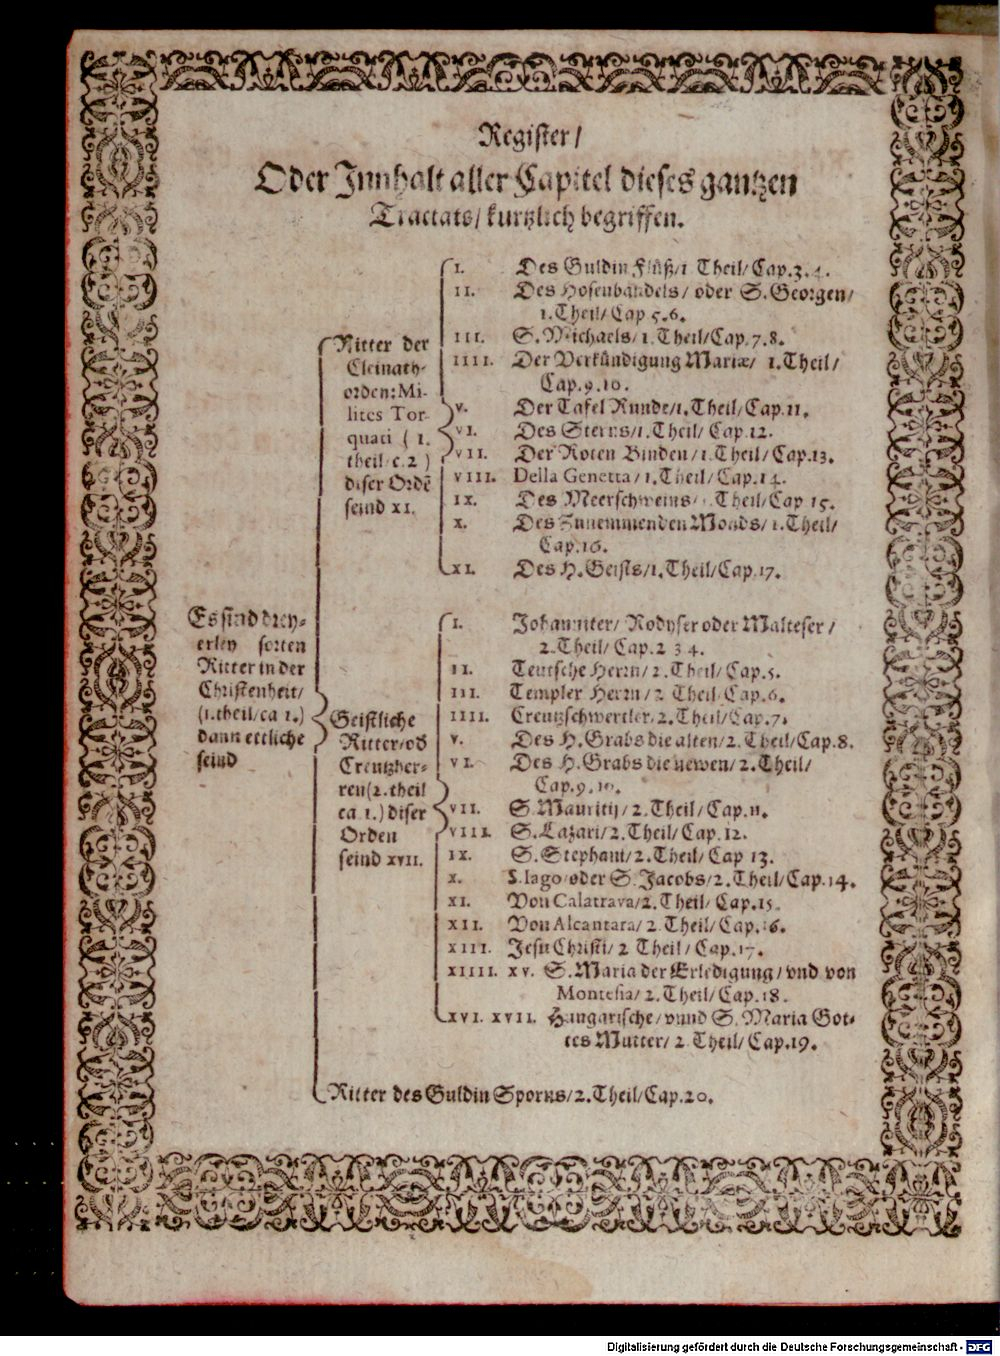 Register/
Oder Innhalt aller Capitel dieses gantzen
Tractats/ kurtzlich begriffen.
Es sind drey-
erley sorten
Ritter in der
Christenheit/
(1.theil/ca 1.)
dann ettliche
seind
Ritter der
Cleinath-
orden: Mi-
lites Tor-
quati ( 1.
theil/c.2 )
diser Ordē
seind XI.
I. Des Guldin Flüß/1 Theil/Cap.3.4.
II. Des Hosenbandels/ oder S. Georgen/
1.Theil/Cap 5.6.
III. S. Michaels/1.Theil/Cap.7.8.
IIII. Der Verkündigung Mariæ/ 1.Theil/
Cap.9.10.
V. Der Tafel Runde/1.Theil/Cap.11.
VI. Des Sterns/1.Theil/ Cap.12.
VII. Der Roten Binden/1.Theil/Cap.13.
VIII. Della Genetta/1.Theil/Cap.14.
IX. Des Meerschweins/1.Theil/Cap 15.
X. Des Zunemmenden Monds/ 1.Theil/
Cap.16.
XI. Des H. Geists/1.Theil/Cap.17.
Geistliche
Ritter/od
Creutzher-
ren(2.theil
ca 1.) diser
Orden
seind XVII.
I. Johanniter/ Rodyser oder Malteser/
2.Theil/Cap.2 3 4.
II. Teutsche Herrn/2.Theil/Cap.5.
III. Templer Herrn/2 Theil/Cap.6.
IIII. Creutzschwertler/2.Theil/Cap.7.
V. Des H. Grabs die alten/2.Theil/Cap.8.
VI. Des H. Grabs die newen/2.Theil/
Cap.9.10.
VII. S. Mauritij/2.Theil/Cap.11.
VIII. S. Lazari/2.Theil/Cap.12.
IX. S. Stephani/2.Theil/Cap 13.
X. S. Iago/oder S. Jacobs/2.Theil/Cap.14.
XI. Von Calatrava/2.Theil/Cap.15.
XII. Von Alcantara/2.Theil/Cap.16.
XIII. Jesu Christi/2 Theil/Cap.17.
XIIII. XV. S. Maria der Erledigung/vnd von
Montesia/2.Theil/Cap.18.
XVI. XVII. Hungarische/vnnd S. Maria Got-
tes Mutter/2.Theil/Cap.19.
Ritter des Guldin Sporns/2.Theil/Cap.20.
Digitalisierung gefördert durch die Deutsche Forschungsgemeinschaft - DFG